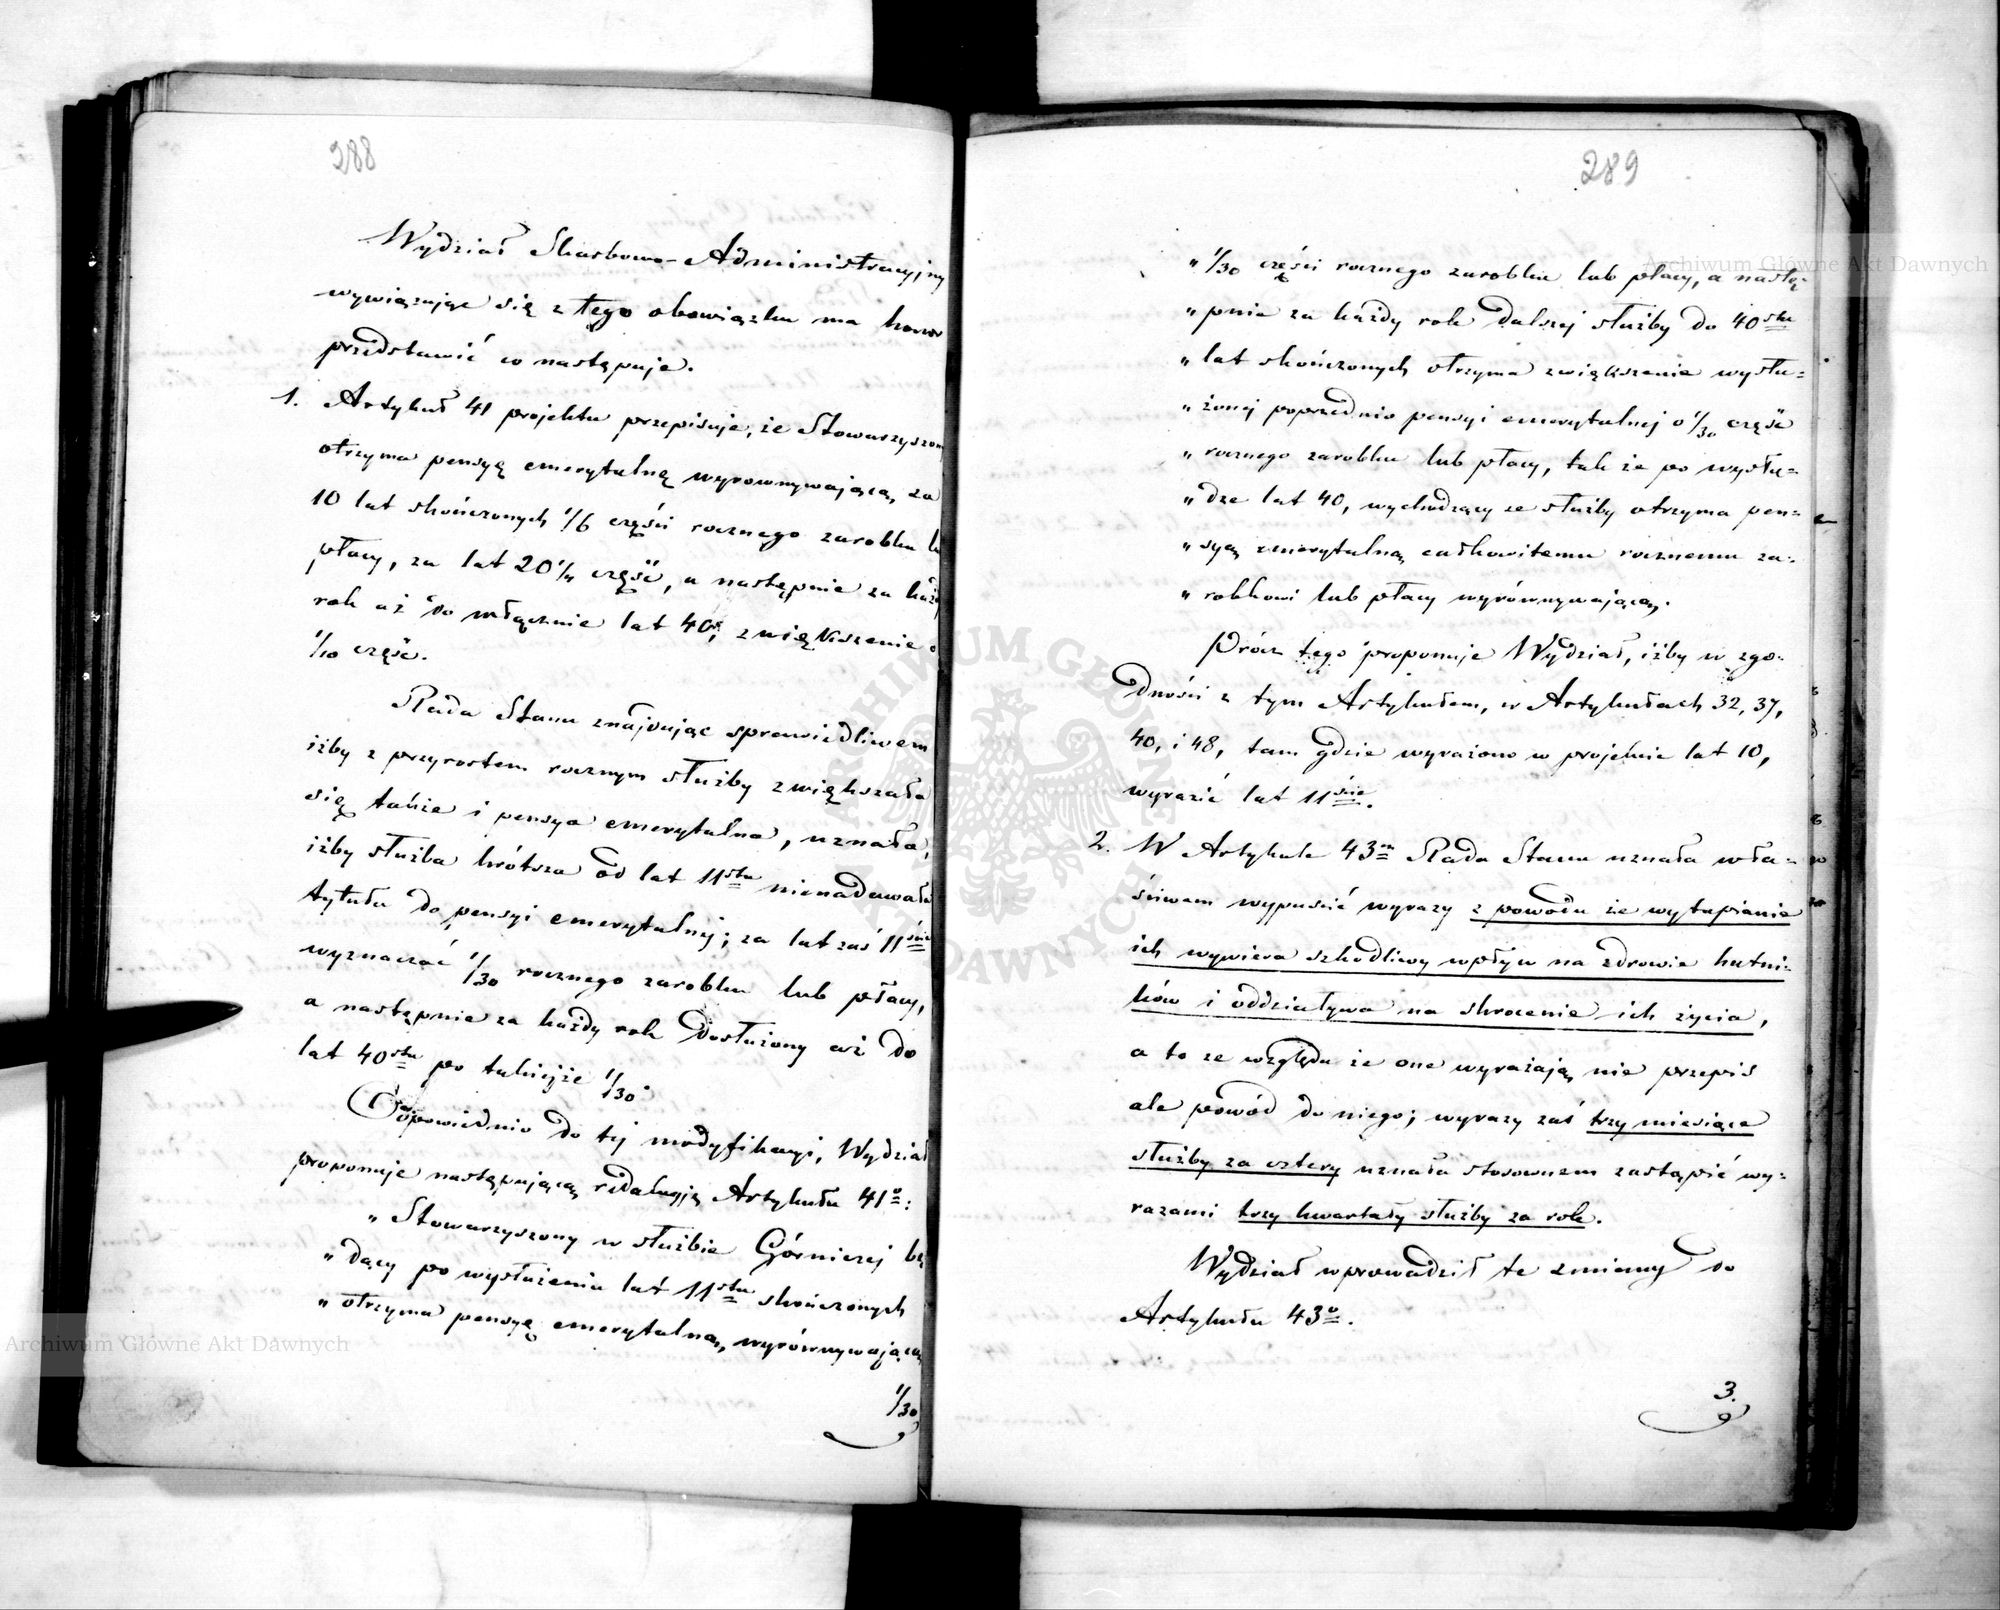 288
Wydział Skarbowo-Administracyjny
wywiązując się z tego obowiązku ma honor
przedstawić co następuje.
1. Artykuł 41 projektu przepisuje, że Stowarzyszony
otrzyma pensyę emerytalną wyrownywającą za
10 lat skończonych 1/6 części rocznego zarobku
płacy, za lat 20 1/4 część, a następnie za każdy
rok aż do włącznie lat 40, zwiększenie o
1/10 część.
Rada Stanu znajdując sprawiedliwem
iżby z przyrostem rocznym służby zwiększała
się także i pensya emerytalna, uznała,
iżby służba krótsza od lat 11stu nienadawała
tytułu do pensyi emerytalnej; za lat zaś 11ście
wyznaczać 11/30 rocznego zarobku lub płacy,
a następnie za każdy rok dosłużony aż do
lat 40stu po takiejże 1/30.
Odpowiednio do tej modyfikacyi, Wydział
proponuje następującą redakcyję Artykułu 41o:
„Stowarzyszony w służbie Górniczej bę
„dący po wysłużeniu lat 11stu skończonych
„otrzyma pensyę emerytalną, wyrównywającą
11/30
289
„11/30 części rocznego zarobku lub płacy, a nastę-
„pnie za każdy rok dalszej służby do 40stu
„lat skończonych otrzyma zwiększenie wysłu=
„żonej poprzednio pensyi emerytalnej o 1/30 część
„rocznego zarobku lub płacy, tak że po wysłu=
„dze lat 40, wychodzący ze służby otrzyma pen=
„syą emerytalną całkowitemu rocznemu za=
„robkowi lub płacy wyrównywającą.
Prócz tego proponuje Wydział, iżby w zgo-
dności z tym Artykułem, w Artykułach 32, 37,
40, i 48, tam gdzie wyrażono w projekcie lat 10,
wyrazić lat 11ście.
2. W Artykule 43m Rada Stanu uznała wła=
ściwem wypuścić wyrazy z powodu że wytapianie
ich wywiera szkodliwy wpływ na zdrowie hutni-
ków i oddziaływa na skrocenie ich życia,
a to ze względu że one wyrażają nie przepis
ale powód do niego; wyrazy zaś trzy miesiące
służby za cztery uznała stosownem zastąpić wy-
razami trzy kwartały służby za rok.
Wydział wprowadził te zmiany do
Artykułu 43o.
3.
Archiwum Główne Akt Dawnych
Archiwum Główne Akt Dawnych
ARCHIWUM GŁÓWNE AKT DAWNYCH